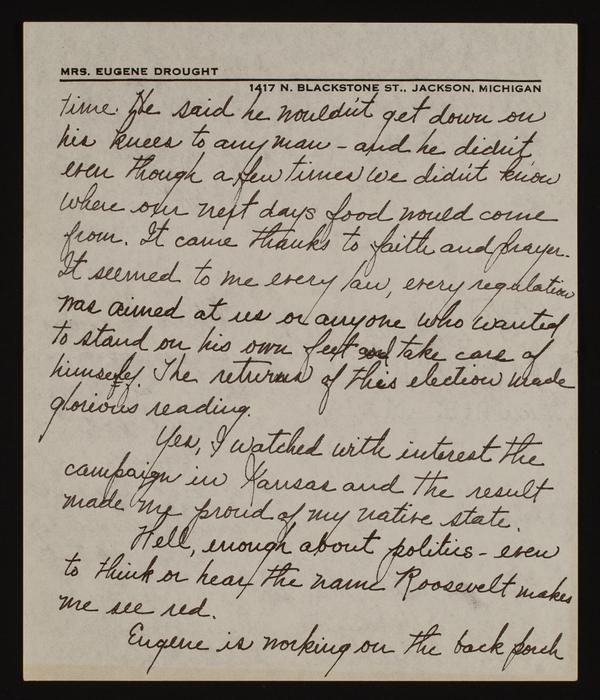 MRS. EUGENE DROUGHT
1417 N. BLACKSTONE ST., JACKSON, MICHIGAN
time. He said he wouldn't get down on
his knees to any man - and he didn't,
even though a few times we didn't know
where our next days food would come
from. It came thanks to faith and prayer.
It seemed to me every law, every regulation
was aimed at us or anyone who wanted
to stand on his own feet and take care of
himself. The returns of this election made
glorious reading.
Yes, I watched with interest the
campaign in Kansas and the result
made me proud of my native state.
Well, enough about politics - even
to think or hear the name Roosevelt makes
me see red.
Eugene is working on the back porch